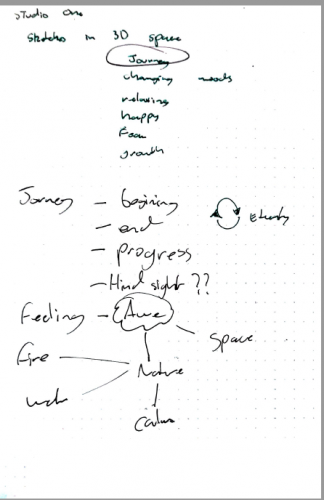 Studio One
Sketches in 3D space
Journey
changing moods
relaxing
happy
growth
Journey - begining
- end
- progress
- Hind sight ??
Eternity
Feeling - Awe
Space
Fire
Nature
Calm